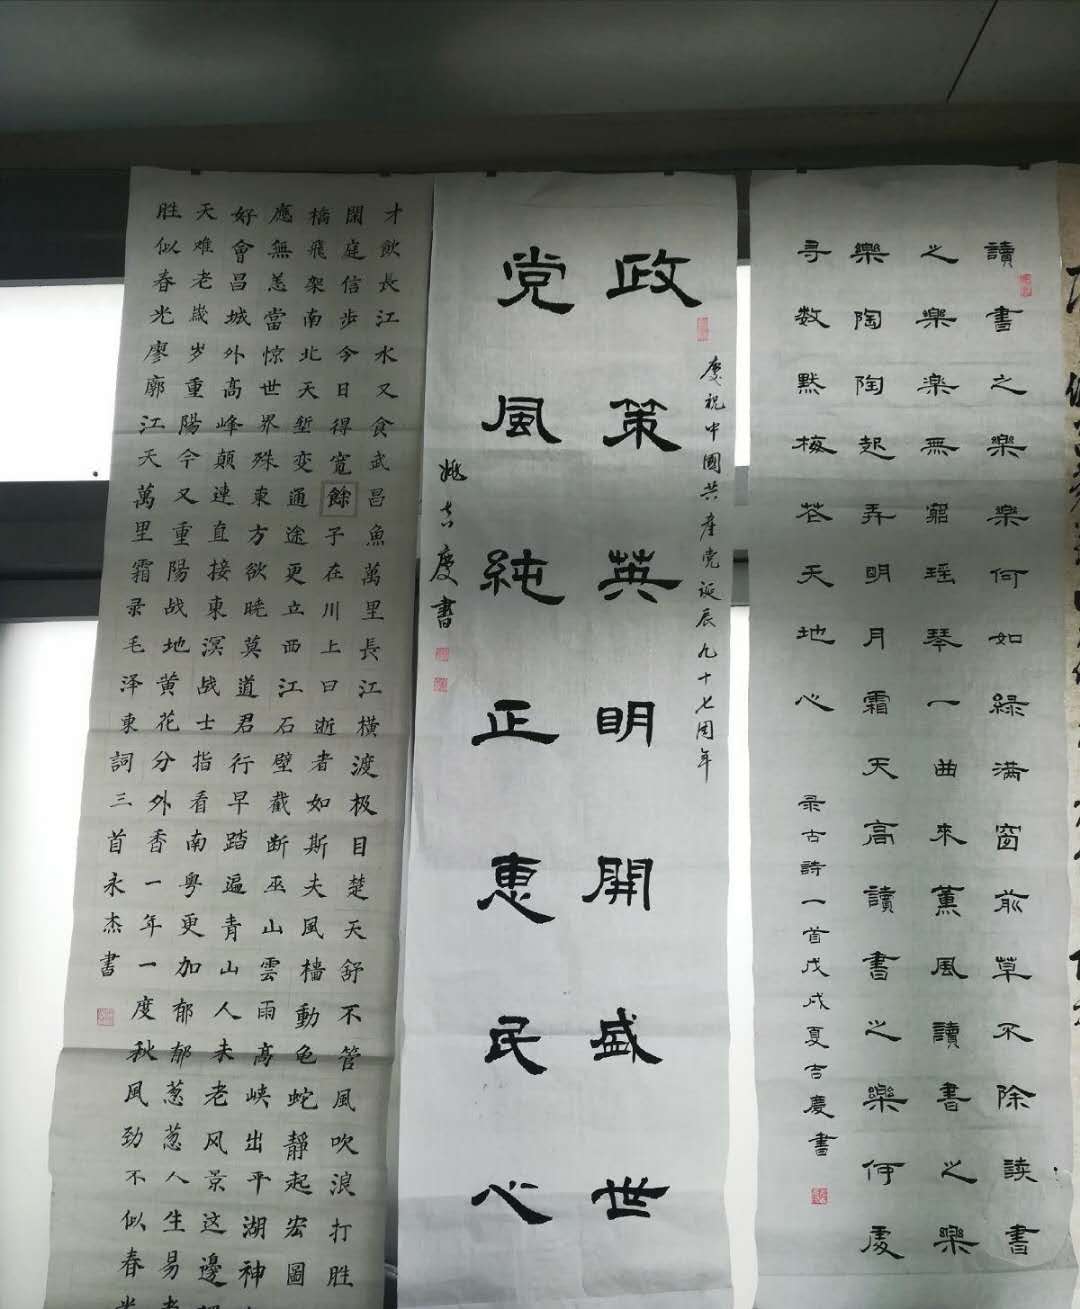 讀書之樂樂何如緑满窗前草不除读書
之樂楽無窮瑶琴一曲来薰風讀書之樂
樂陶陶起弄明月霜天高讀書之樂何處
寻数點梅花天地心
录古詩一首戊戌夏吉慶書
政策英明開盛世
慶祝中國共產党诞辰九十七周年
党風純正惠民心
姚吉慶書
才飲長江水又食武昌魚萬里長江橫渡极目楚天舒不管風吹浪打胜
閑庭信步今日得宽餘子在川上曰逝者如斯夫風樯動龟蛇靜起宏圖
橋飛架南北天堑变通途更立西江石壁截断巫山雲雨高峡出平湖神
應無恙當惊世界殊東方欲晓莫道君行早踏遍青山人未老风景这邊
好會昌城外高峰颠連直接東溟战士指看南粤更加郁郁葱葱人生易老
天难老歲岁重陽今又重陽战地黄花分外香一年一度秋風劲不似春光
胜似春光廖廓江天萬里霜录毛泽東詞三首永杰書